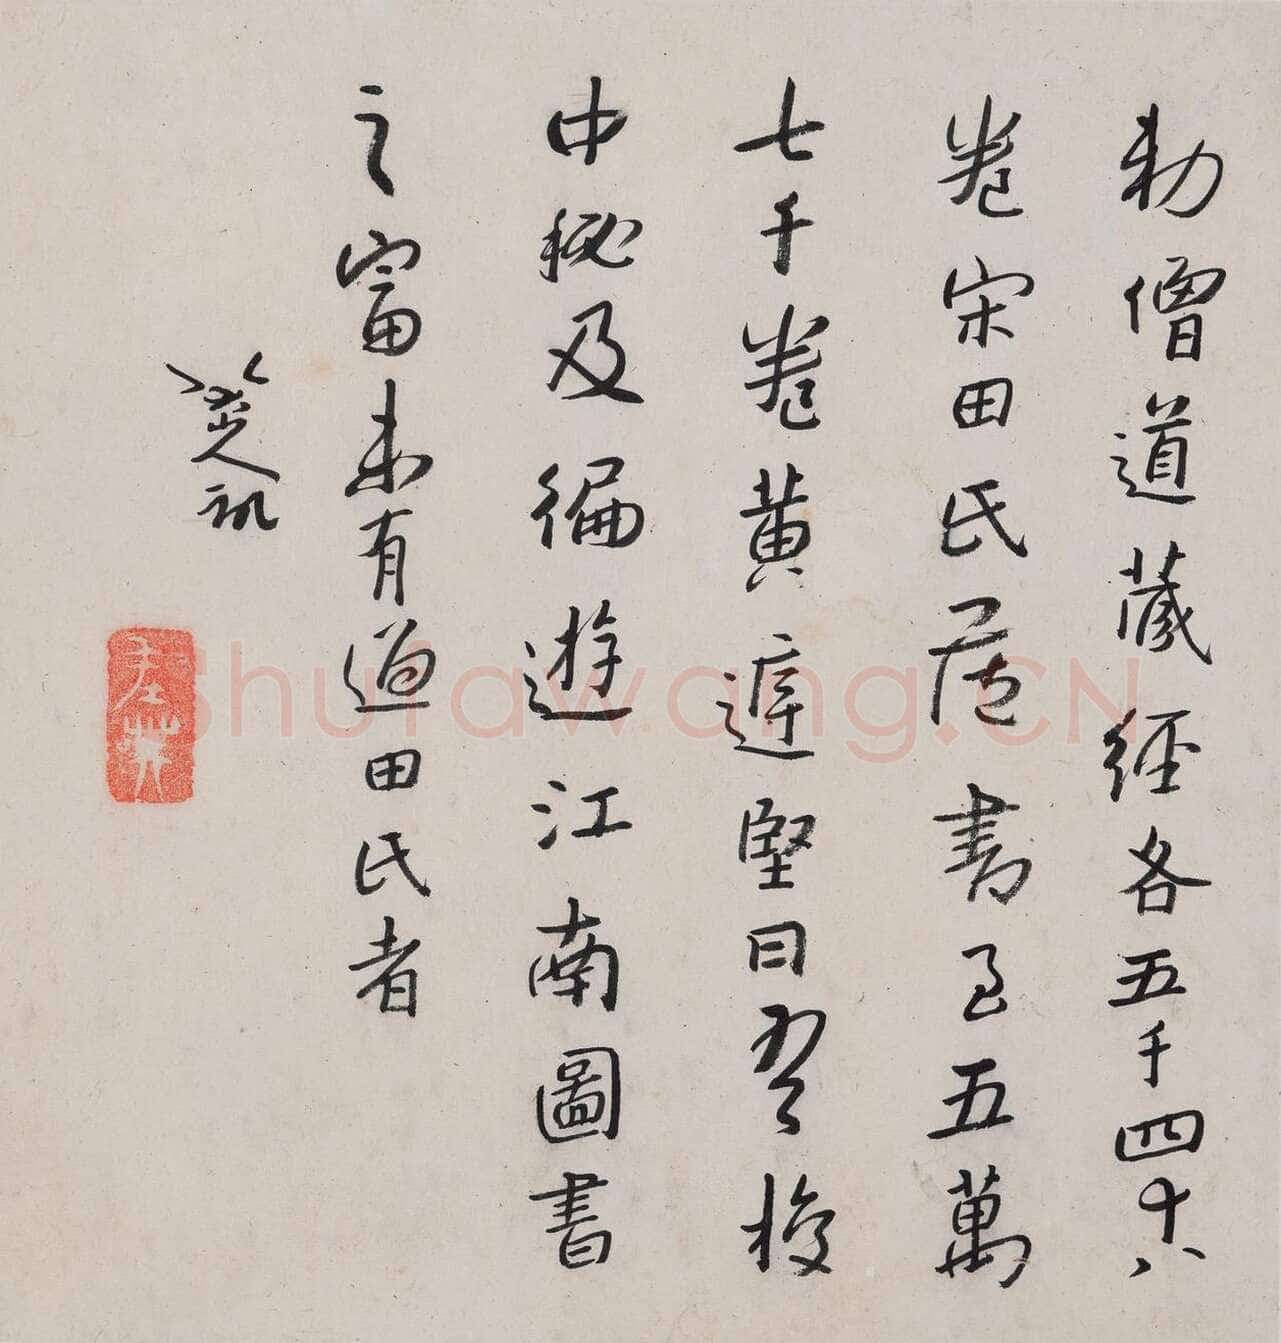 勅僧道藏經各五千四十八
卷宋田氏書至五萬
七千卷黃庭堅曰吾校
中秘及徧遊江南圖書
之富未有過田氏者
八大山人礼
Shufawang.CN